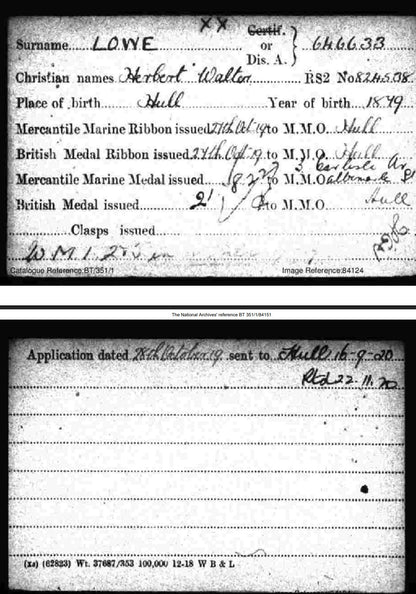 XX
Surname LOWE Certif. or Dis. A. } 646633
Christian names Herbert Walter RS2 No 824508
Place of birth Hull Year of birth 1879
Mercantile Marine Ribbon issued 27th Oct 19 to M.M.O. Hull
British Medal Ribbon issued 27th Oct 19 to M.M.O. Hull
3 Carlisle Av
Mercantile Marine Medal issued to M.M.O. St
British Medal issued 21 to M.M.O. Hull
Clasps issued
W.M.1.
Catalogue Reference:BT/351/1 Image Reference:84124
The National Archives' reference BT 351/1/84151
Application dated 28th October 19 sent to Hull 16-9-20
Rtd 22.11.20
(xs) (62833) Wt. 37687/353 100,000 12-18 W B & L